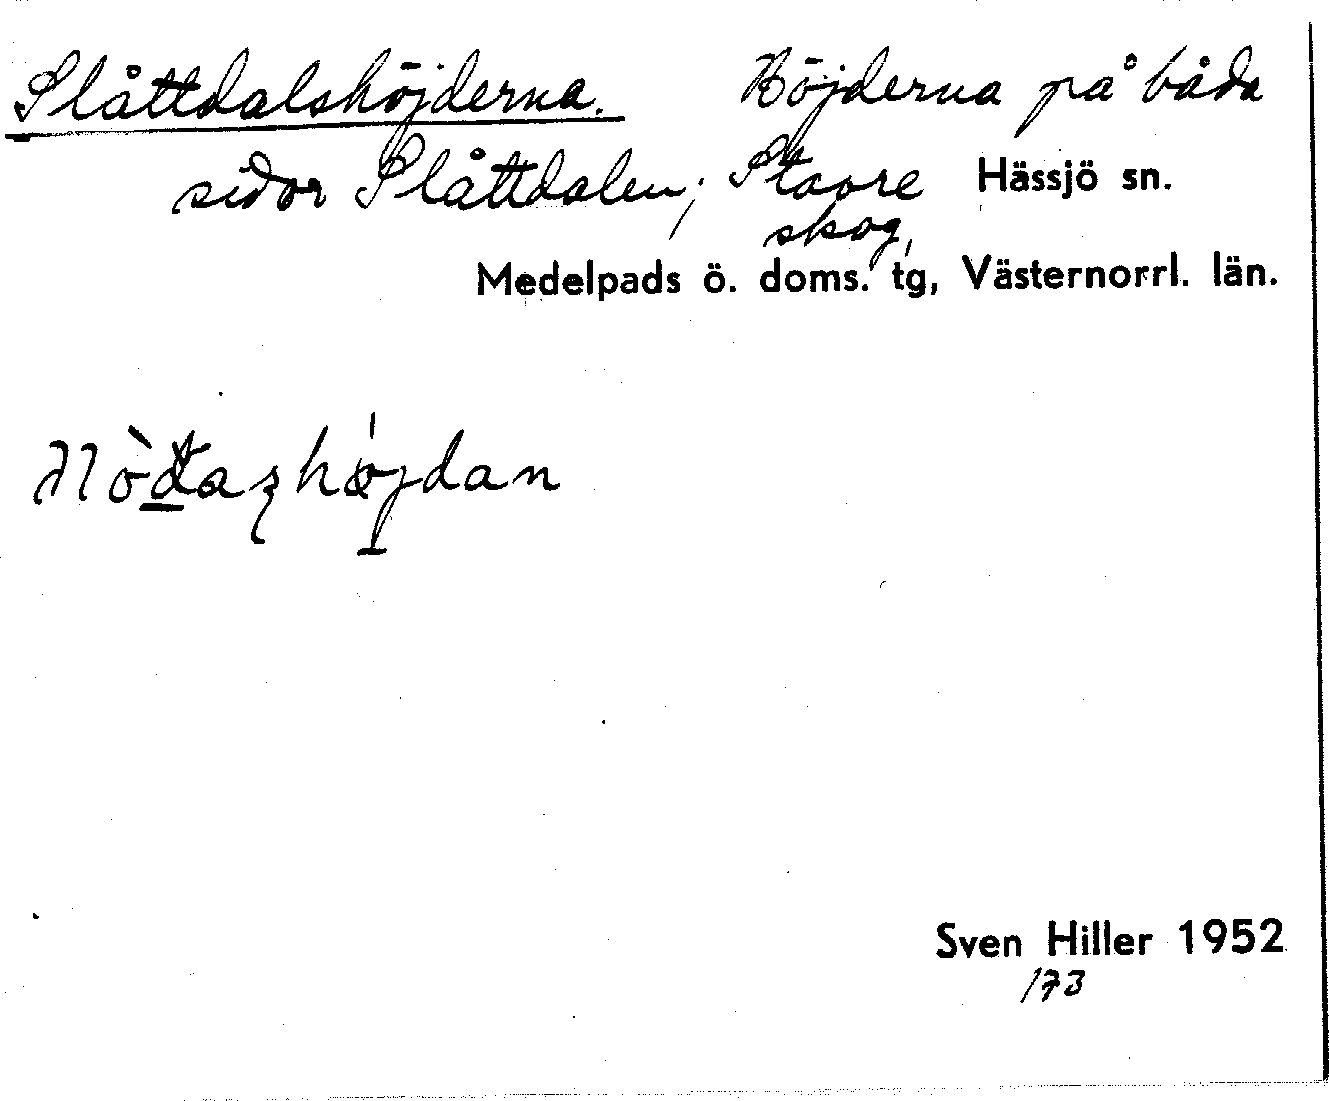 Slåttdalshöjderna. Höjderna på båda
sidor Slåttdalen; Stavre Hässjö sn.
skog,
Medelpads ö. doms. tg, Västernorrl. län.
Sven Hiller 1952
173